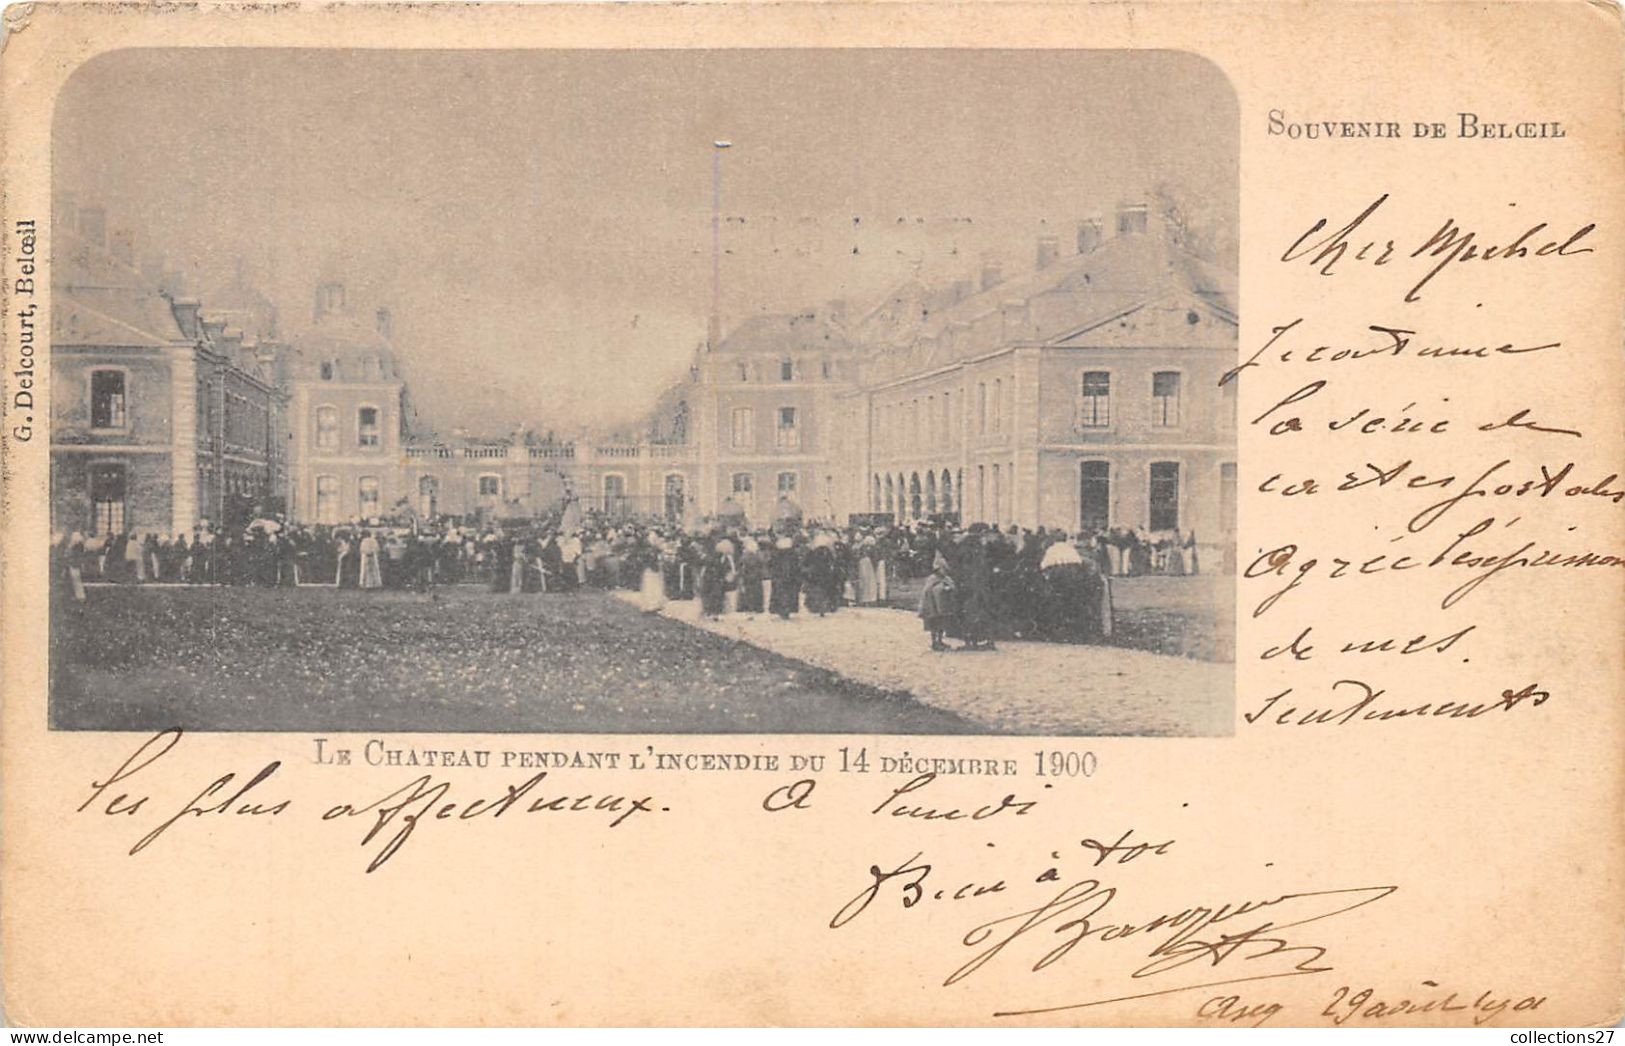 SOUVENIR DE BELŒIL
G. Delcourt, Belœil
Cher Michel
Je continue
la série de
cartes postales
Agrée l'expression
de mes
sentiments
LE CHATEAU PENDANT L'INCENDIE DU 14 DÉCEMBRE 1900
les plus affectueux. A lundi
Bien à toi
29 août
collections27